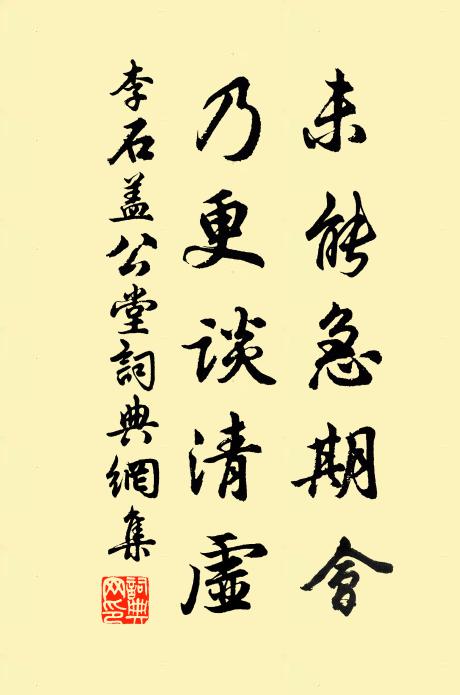 未能急期會
乃更談清虛
李石盖公堂詞典網集
詞典网印